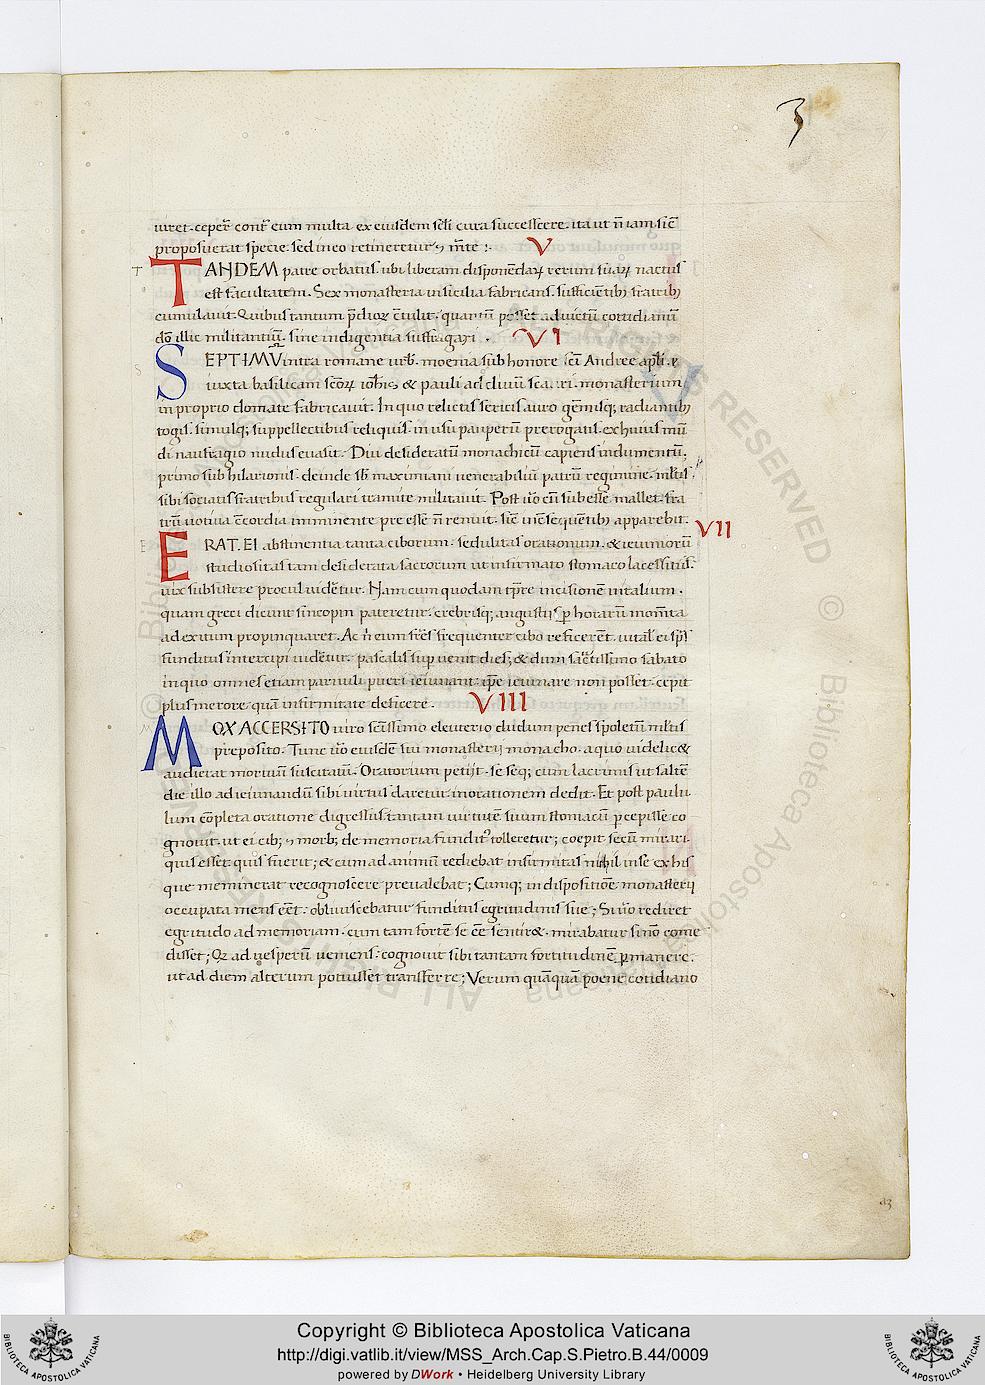 3
uiret. ceper̄ cont̄ eum multa ex eiusdem s̄c̄li cura succrescere. ita ut n̄ iam sic̄
proposuerat specie. sed in eo retineretur ⁊ m̄te :·
V
T TANDEM patre orbatus. ubi liberam disponendaꝝ rerum suaꝝ nactus
est facultatem. Sex monasteria in sicilia fabricans. sufficiētibꝫ fratribꝫ
cumulauit. Quibus tantum p̄dioꝝ c̄tulit. quantū posset ad uictū cotidianū
dō illic militantiū. sine indigentia suffragari .
VI
S SEPTIMV̄ intra romane urb. moenia sub honore sc̄i Andree apl̄i. &
iuxta basilicam sc̄oꝝ ioh̄is & pauli ad cliuū scauri. monasterium
in proprio domate fabricauit. In quo relictis sericis auro gēmisqꝫ radiantibꝫ
togis. simulqꝫ suppellectibus reliquis. in usu pauperū prerogatis. ex huius mū
di naufragio nudus euasit. Diu desideratū monachicū capiens indumentū.
primo sub hilarionis. deinde sb̄ maximiani uenerabiliū patrū regimine. mltis
sibi sociatis fratribus regulari tramite militauit. Post u͛o cū subesse mallet. fra
trū uotiua c̄cordia imminente preesse n̄ renuit. sic̄ in c̄sequētibꝫ apparebit.
VII
E ERAT. EI abstinentia tanta ciborum. sedulitas orationum. & ieiuniorū
studiositas tam desiderata sacrorum ut infirmato stomaco lacessitus.
uix subsistere procul uidētur. Nam cum quodam tp̄re incisionē uitalium.
quam greci dicunt sincopin pateretur. crebrisqꝫ angustijs ꝑ horarū momta
ad exitum propinquaret. Ac n̄ eum fr̄es frequenter cibo reficerēt. uital̄ ei sp̄s
funditus intercipi uidētur. pascalis sup uenit dies; & dum sac̄tissimo sabato
in quo omnes etiam paruuli pueri ieiunant. ip̄e ieiunare non posset. cepit
plus merore. quā infirmitate deficere .
VIII
M MOX ACCERSITO uiro sc̄issimo eleuterio dudum penes spoletū mltis
preposito. Tunc u͛o eiusdē sui monasterij monacho. a quo uidelic&
audierat mortuū suscitatū. Oratorium petijt. se seqꝫ cum lacrimis ut saltē
die illo ad ieiunandū sibi uirtus daretur in orationem dedit. Et post paulu
lum cōpleta oratione digressus. tantam uirtutē suum stomacū ꝑcepisse co
gnouit. ut ei cibꝫ ⁊ morbꝫ de memoria fundit̉ tolleretur; coepit secū mirari.
quis esset. quis fuerit; & cum ad animū rediebat infirmitas nichil in se ex his
que meminerat recognoscere preualebat; Cumqꝫ in dispositiōe monasterij
occupata mens eēt. obliuiscebatur funditus egritudinis sue; Si u͛o rediret
egritudo ad memoriam. cum tam fortē se eē sentir&. mirabatur si nō come
disset; Qꝫ ad uesperū ueniens. cognouit sibi tantam fortitudinē ꝑmanere.
ut ad diem alterum potuisset transferre; Verum quāquā poene cotidiano
a3
Copyright © Biblioteca Apostolica Vaticana
http://digi.vatlib.it/view/MSS_Arch.Cap.S.Pietro.B.44/0009
powered by DWork • Heidelberg University Library